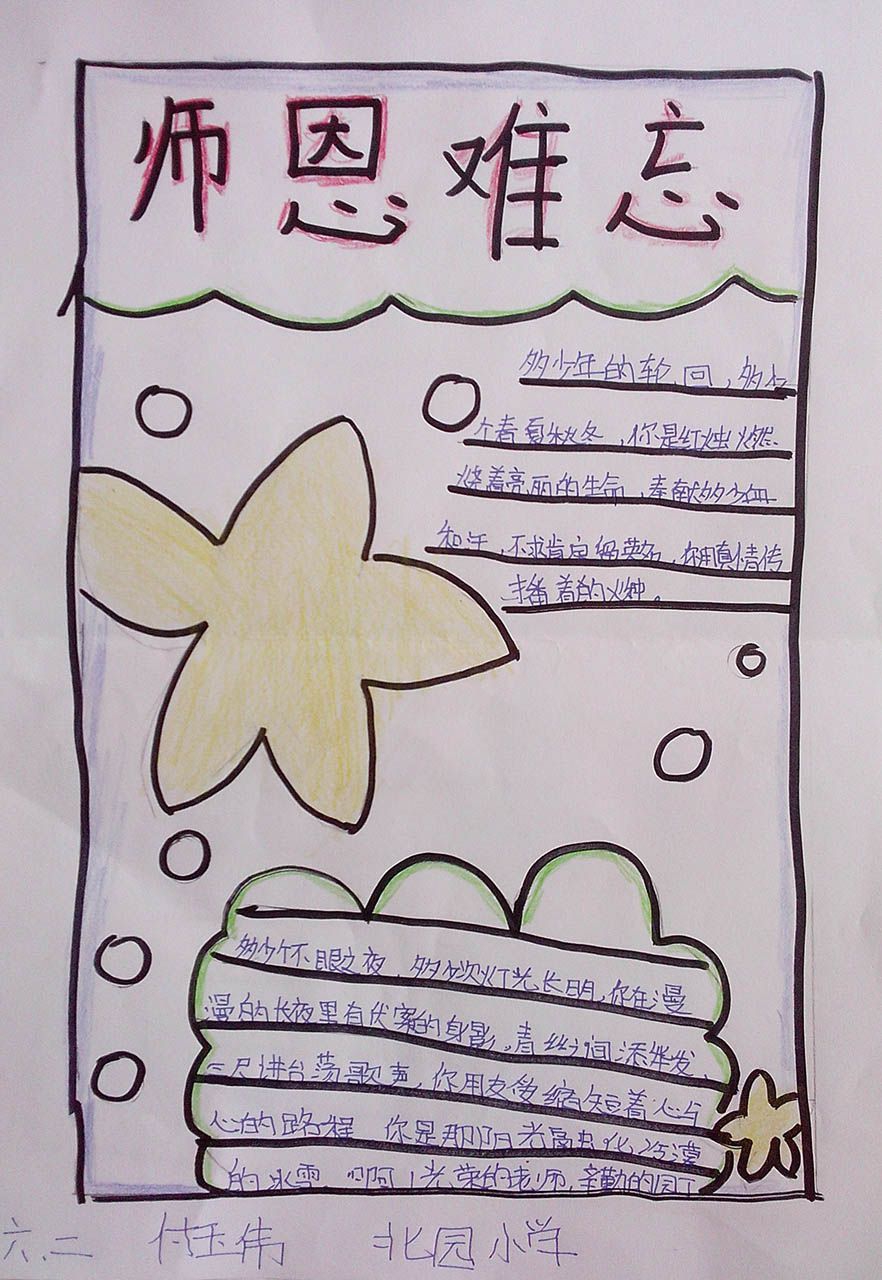 师恩难忘
多少年的轮回，多少
个春夏秋冬，你是红烛燃
烧着亮丽的生命，奉献多少
和年，不求青定名英，你用真情传
播着的火种。
多少个不眠之夜，多少次灯光长明，你在漫
漫的长夜里有伏案的身影，青丝之间添华发，
三尺讲台荡歌声，你用友多缩短着心与
心的路程 你是那阳光 化 漠
的冰雪 啊！光荣的老师，辛勤的园丁
六.二 付玉伟 北园小学